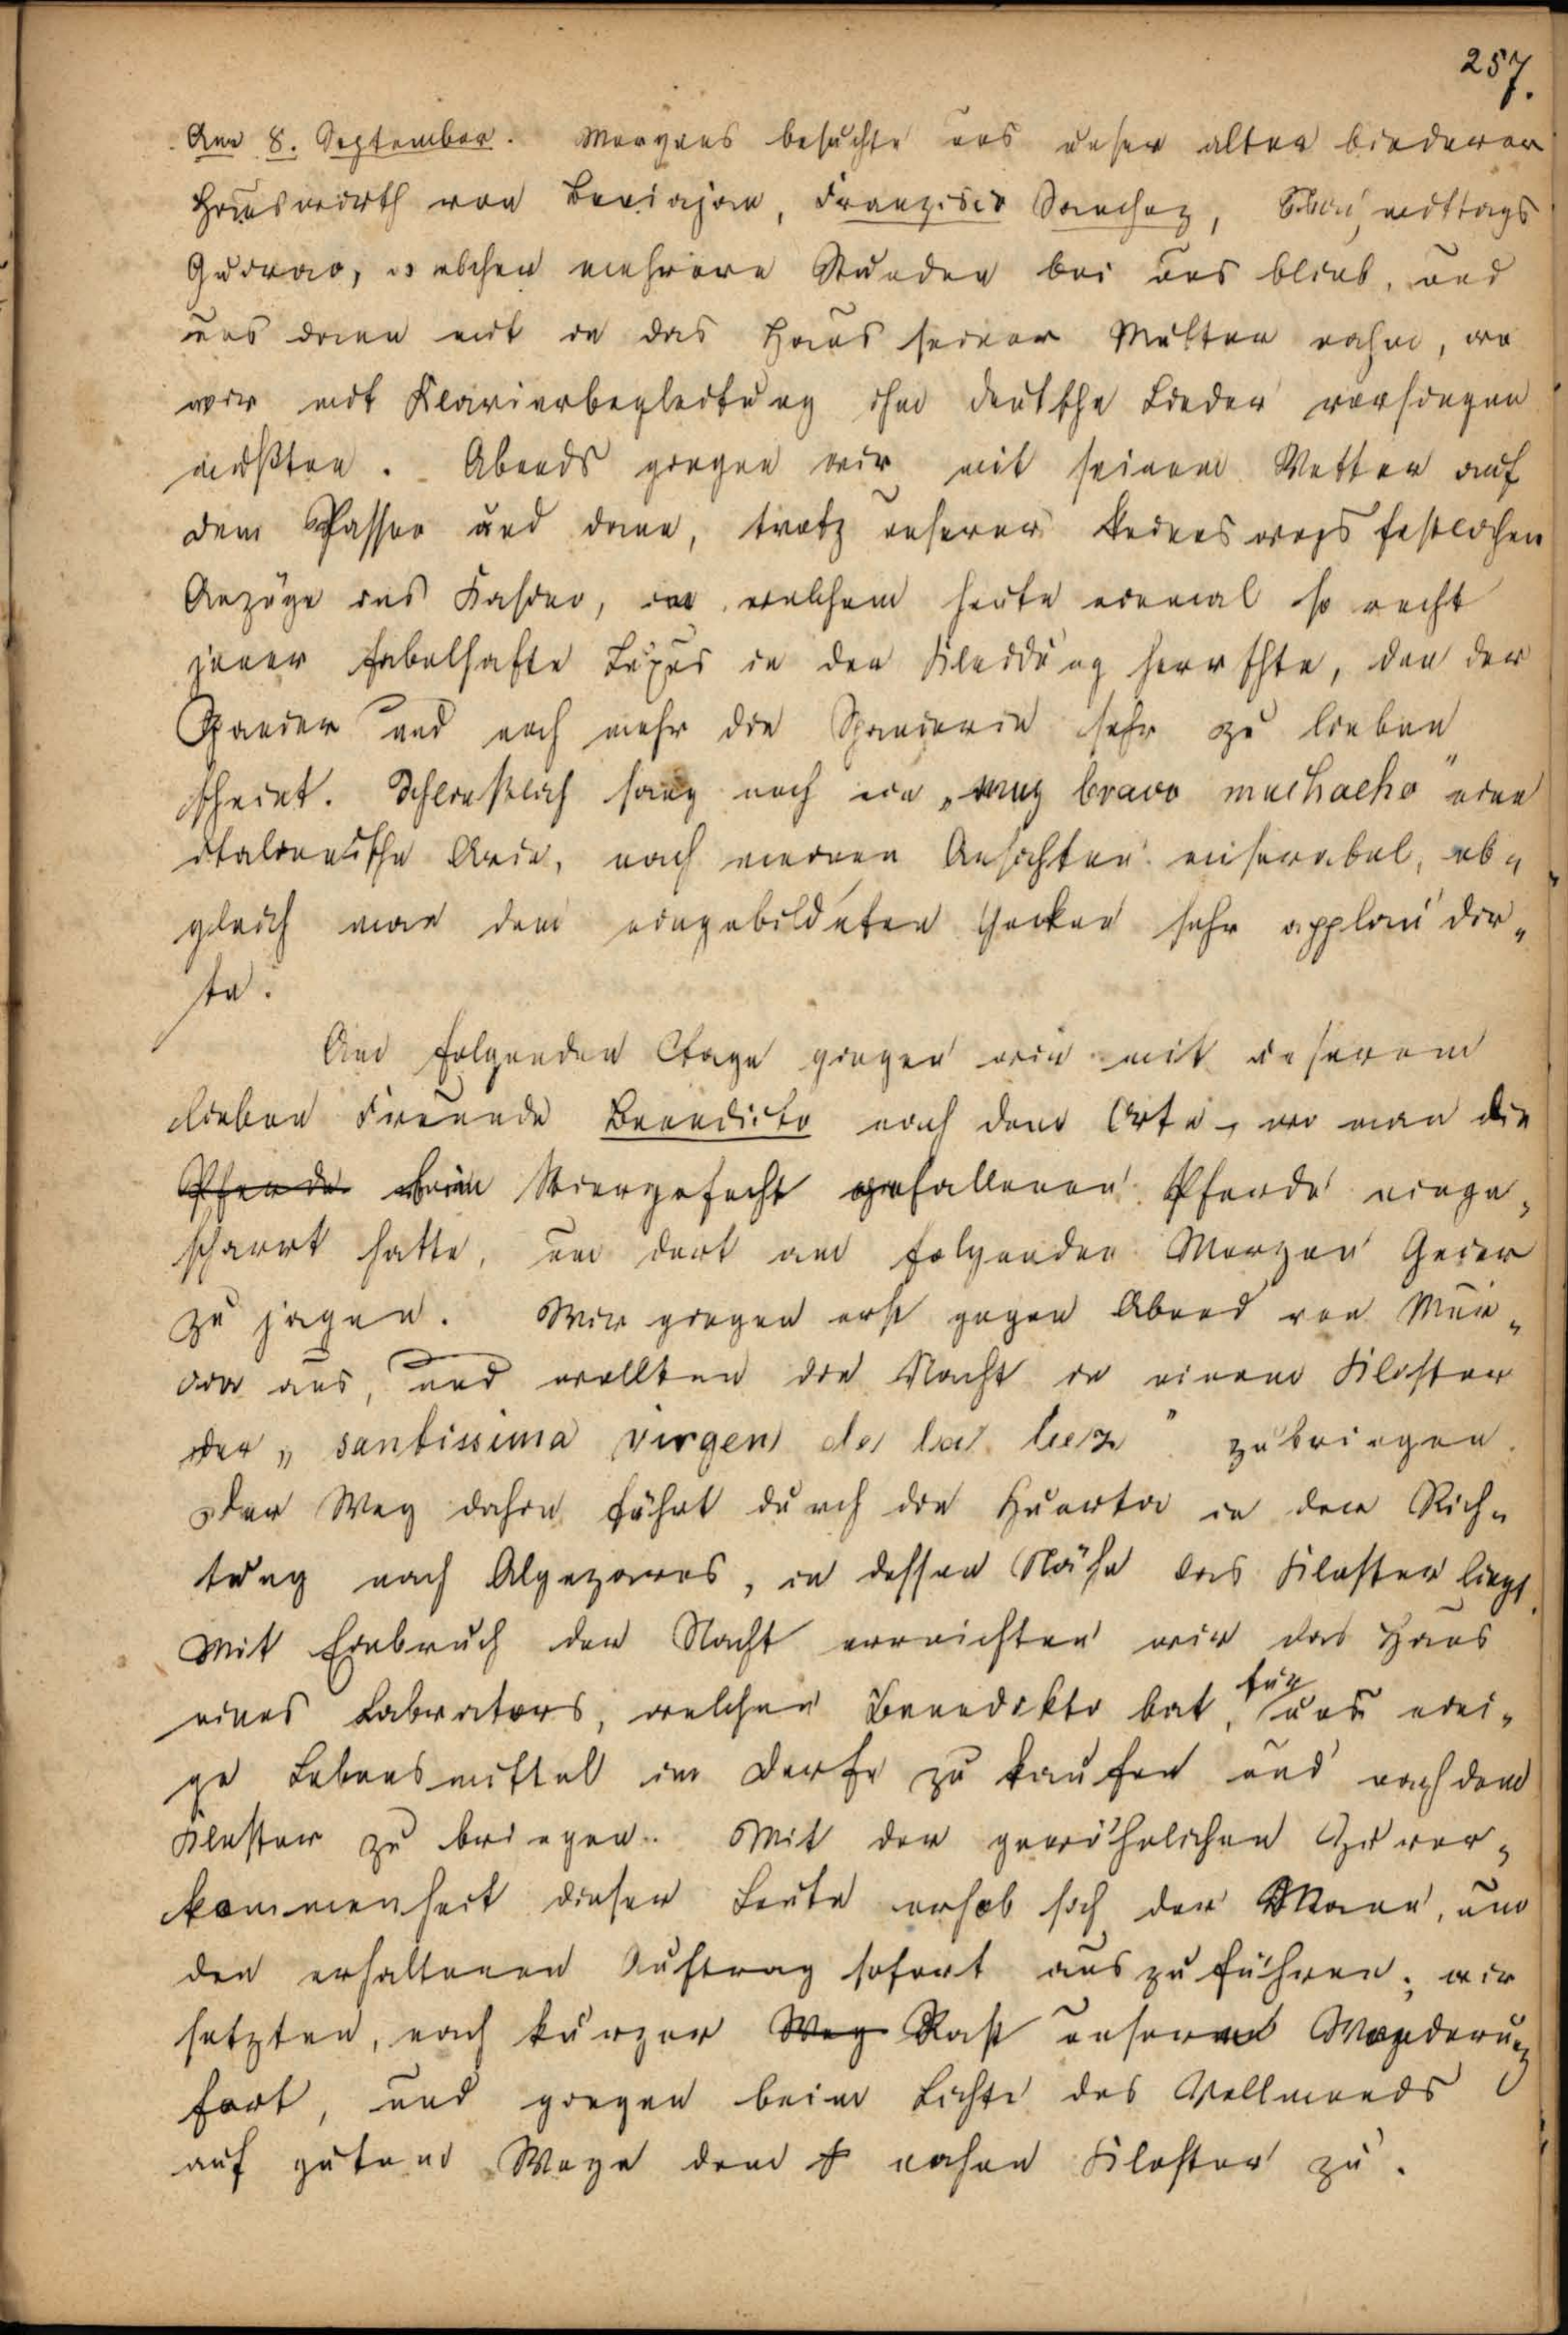 257.
Am 8. September. Morgens besuchte uns unser alter biederer
Hauswirth von Beniajan, Franzisco Sanchez, mittags
Guirao, welcher mehrere Stunden bei uns blieb, und
uns dann mit in das Haus seiner Mutter nahm, wo
wir mit Klavierbegleitung ihm deutsche Lieder vorsingen
mußten. Abends gingen wir mit seinem Vetter auf
dem Passeo und dann, trotz unserer keineswegs festlichen
Anzüge ins Kasino, in welchem heute einmal so recht
jener fabelhafte Luxus in der Kleidung herrschte, den der
Spanier und noch mehr die Spanierin sehr zu lieben
scheint. Schließlich sang noch ein „muy bravo muchacho" eine
italienische Arie, nach meinen Ansichten miserabel, ob„
gleich man dem eingebildeten Gecken sehr applaudir„
te.
Am folgenden Tage gingen wir mit unserem
lieben Freunde Benedicto nach dem Orte, wo man die
Pferde beim Stiergefecht gefallenen Pferde einge„
scharrt hatte, um dort am folgenden Morgen Geier
zu jagen. Wir gingen erst gegen Abend von Mur„
cia aus, und wollten die Nacht in einem Kloster
der „santissima virgen de la luz" zubringen.
Der Weg dahin führt durch die Huerta in der Rich„
tung nach Algezares, in dessen Nähe das Kloster liegt.
Mit Einbruch der Nacht erreichten wir das Haus
eines Labrators, welchen Benedikto bat, für uns eini„
ge Lebensmittel im Dorfe zu kaufen und nach dem
Kloster zu bringen. Mit der gewöhnlichen Zuvor„
kommenheit dieser Leute erhob sich der Mann, um
den erhaltenen Auftrag sofort auszuführen; wir
setzten, nach kurzer Weg Rast unsere Wanderung
fort, und gingen beim Lichte des Vollmonds
auf gutem Wege dem nahen Kloster zu.